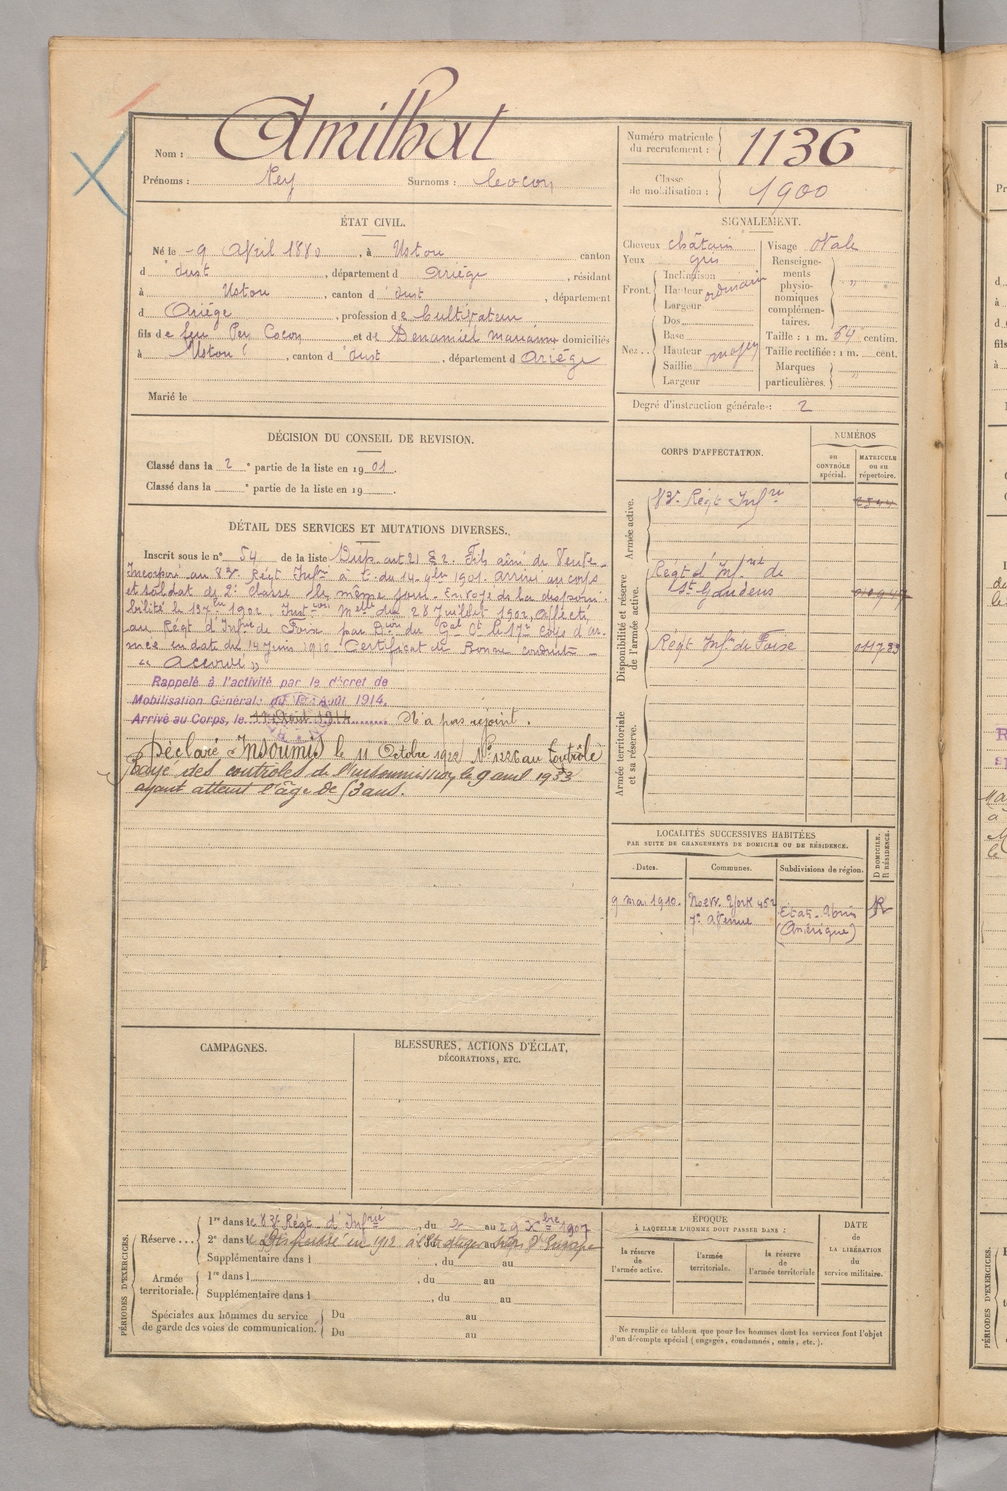 Nom : Amilhat
Numéro matricule du recrutement : 1136
Prénoms : Pey Surnoms : Cocon
Classe de mobilisation : 1900
ÉTAT CIVIL.
Né le 9 April 1880, à Ustou canton
d'oust, département d Ariége, résidant
à Ustou, canton d'oust, département
d Ariége, profession de Cultivateur
fils de feu Pey Cocon et de Denamiel mariann domiciliés
à Ustou, canton d'oust, département d Ariége
Marié le
SIGNALEMENT.
Cheveux châtain
Yeux gris
Front. Inclinaison
Hauteur ordinair
Largeur
Nez.. Dos
Base
Hauteur moyen
Saillie
Largeur
Visage ovale
Renseignements physionomiques complémentaires. "
Taille : 1 m. 54 centim.
Taille rectifiée : 1 m. cent.
Marques particulières. "
Degré d'instruction générale : 2
DÉCISION DU CONSEIL DE REVISION.
Classé dans la 2e partie de la liste en 1901.
Classé dans la e partie de la liste en 19 .
DÉTAIL DES SERVICES ET MUTATIONS DIVERSES.
Inscrit sous le n° 54 de la liste Disp. art 21 § 2. Fils aîné de Veuve.
Incorporé au 83e Régt Infrie à c. du 14 9bre 1901. arrivé au corps
et soldat de 2e classe le même jour. Envoyé de la disponi
bilité le 13 7bre 1902. Instion Melle du 28 Juillet 1902, Affecté
au Régt d'Infrie de Foix par Don du Gal Ct le 17e corps d'ar
mée en date du 14 Juin 1910 Certificat de Bonne conduite
" Accordé "
Rappelé à l'activité par le décret de
Mobilisation Générale du 1er Août 1914.
Arrivé au Corps, le 11 Août 1914 N'a pas rejoint.
Déclaré Insoumis le 11 Octobre 1922 N° 1226 au Contrôle
Rayé des contrôles de l'insoumission, le 9 avril 1933
ayant atteint l'âge de 53 ans.
CORPS D'AFFECTATION.
NUMÉROS
au CONTRÔLE spécial.
MATRICULE ou au répertoire.
Armée active.
83e Régt Infrie
Disponibilité et réserve de l'armée active.
Regt d'Infrie de
St Gaudens
Régt Infie de Foix 01723
Armée territoriale et sa réserve.
LOCALITÉS SUCCESSIVES HABITÉES
PAR SUITE DE CHANGEMENTS DE DOMICILE OU DE RÉSIDENCE.
D DOMICILE. R RÉSIDENCE.
Dates. Communes. Subdivisions de région.
9 mai 1910. New York 462 7e avenue Etats-Unis (Amérique) R
CAMPAGNES.
BLESSURES, ACTIONS D'ÉCLAT,
DÉCORATIONS, ETC.
PÉRIODES D'EXERCICES.
Réserve ... 1re dans le 83e Régt d'Infrie, du 2 au 29 Xbre 1907
2e dans le Dispensé en 1912 à l'étranger hors d'Europe du au
Supplémentaire dans l , du au
Armée territoriale. 1re dans l , du au
Supplémentaire dans l , du au
Spéciales aux hommes du service de garde des voies de communication. Du au
Du au
ÉPOQUE
À LAQUELLE L'HOMME DOIT PASSER DANS :
la réserve de l'armée active.
l'armée territoriale.
la réserve de l'armée territoriale
DATE DE LA LIBÉRATION du service militaire.
Ne remplir ce tableau que pour les hommes dont les services font l'objet
d'un décompte spécial (engagés, condamnés, omis, etc.).